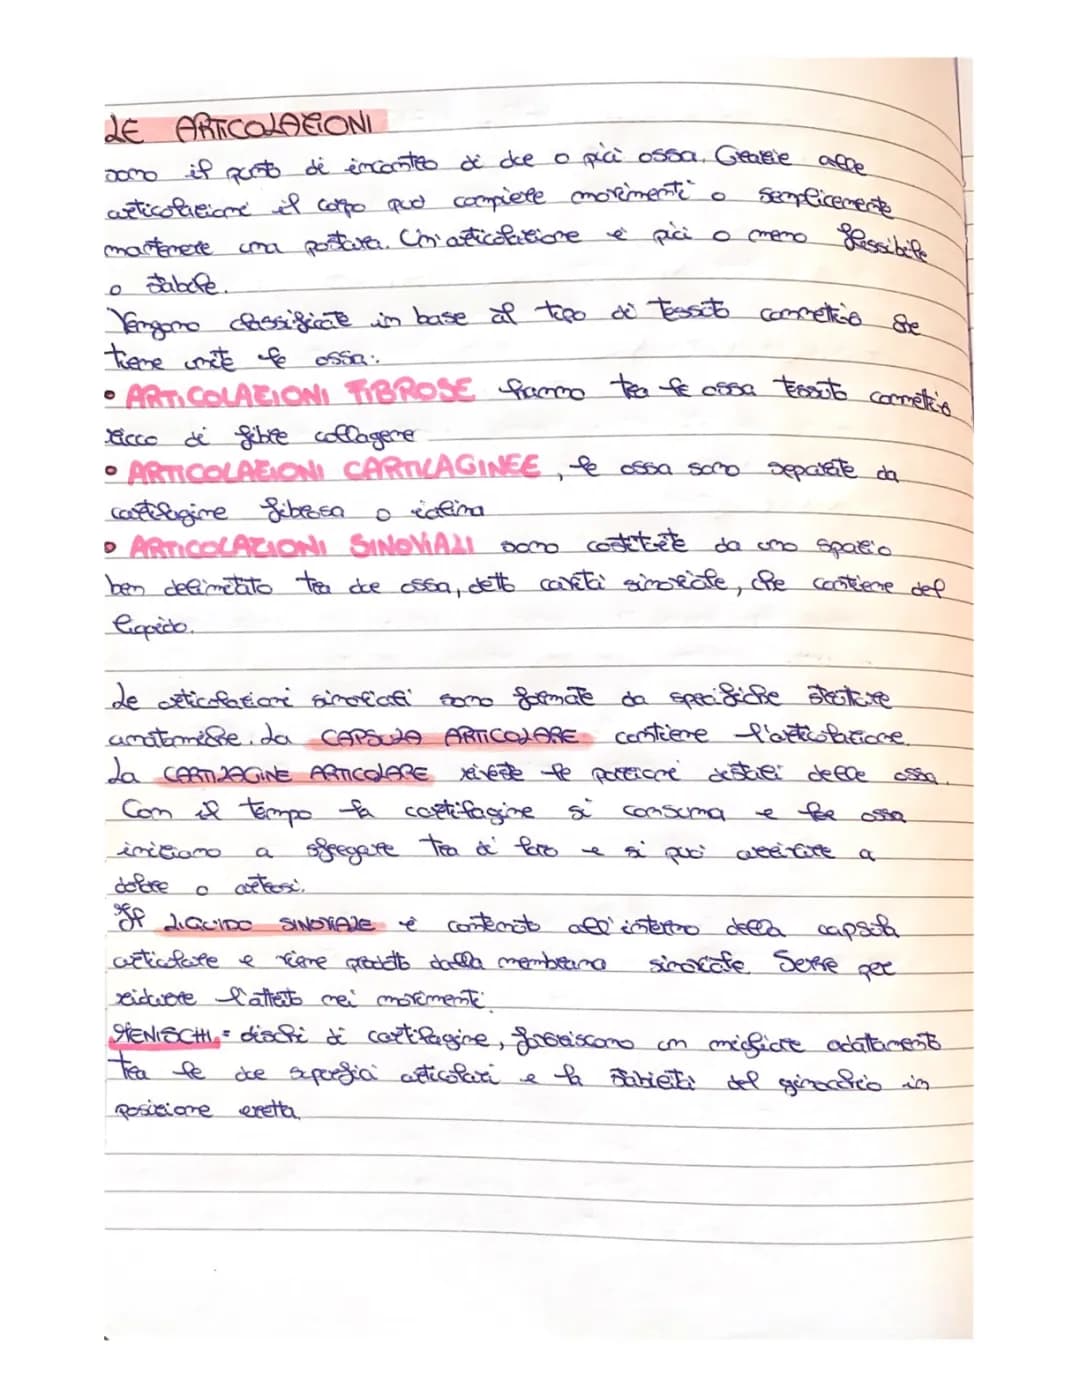 LE ARTICOLAZIONI
sono il punto di incontro di due o più ossa. Grazie alle
articolazioni il corpo può compiere movimenti o semplicemente
mantenere una postura. Un'articolazione è più o meno flessibile
o stabile.
Vengono classificate in base al tipo di tessuto connettivo che
tiene unite le ossa:
• ARTICOLAZIONI FIBROSE hanno tra le ossa tessuto connettivo
ricco di fibre collagene
• ARTICOLAZIONI CARTILAGINEE, le ossa sono separate da
cartilagine fibrosa o ialina
• ARTICOLAZIONI SINOVIALI sono costituite da uno spazio
ben delimitato tra due ossa, detto cavità sinoviale, che contiene del
liquido.
Le articolazioni sinoviali sono formate da specifiche strutture
anatomiche. La CAPSULA ARTICOLARE contiene l'articolazione.
La CARTILAGINE ARTICOLARE riveste le porzioni distali delle ossa.
Con il tempo la cartilagine si consuma e le ossa
iniziano a sfregare tra di loro e si può arrivare a
dolore o artrosi.
Il LIQUIDO SINOVIALE è contenuto all'interno della capsula
articolare e viene prodotto dalla membrana sinoviale. Serve per
ridurre l'attrito nei movimenti.
MENISCHI = dischi di cartilagine, forniscono un migliore adattamento
tra le due superfici articolari e la stabilità del ginocchio in
posizione eretta.